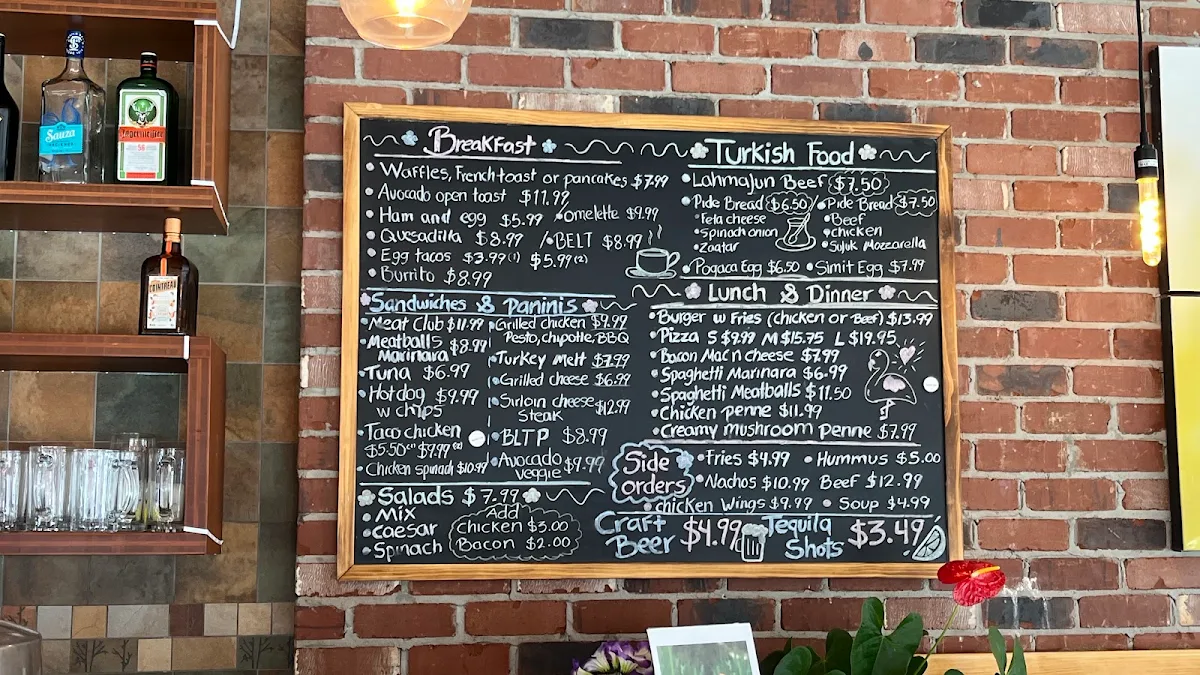 Sauza
Jägermeister
56
COINTREAU
Breakfast
Waffles, French toast or pancakes $7.99
Avocado open toast $11.99
Ham and egg $5.99 •Omelette $9.99
Quesadilla $8.99 / •BELT $8.99
Egg tacos $3.99(1) $5.99(2)
Burrito $8.99
Sandwiches & Paninis
•Meat Club $11.99
•Meatballs $8.99
Marinara
•Tuna $6.99
•Hotdog $9.99
w chips
•Taco chicken
$5.50(1) $9.99(2)
•Chicken spinach $10.99
•Grilled chicken $9.99
Pesto, chipotle, BBQ
•Turkey melt $7.99
•Grilled cheese $6.99
•Sirloin cheese $12.99
Steak
•BLTP $8.99
•Avocado $9.99
veggie
Salads $7.99
•Mix
•Caesar
•Spinach
Add
Chicken $3.00
Bacon $2.00
Turkish Food
•Lahmajun Beef $7.50
•Pide Bread $6.50 / •Pide Bread $7.50
•Feta cheese
•Spinach onion
•Zaatar
•Beef
•chicken
•Sujuk Mozzarella
•Pogaca Egg $6.50 •Simit Egg $7.99
Lunch & Dinner
•Burger w Fries (chicken or Beef) $13.99
•Pizza S $9.99 M $15.75 L $19.95
•Bacon Mac n cheese $7.99
•Spaghetti Marinara $6.99
•Spaghetti Meatballs $11.50
•Chicken penne $11.99
•Creamy mushroom penne $7.99
Side
orders
•Fries $4.99 •Hummus $5.00
•Nachos $10.99 Beef $12.99
•chicken Wings $9.99 •Soup $4.99
Craft
Beer $4.99
Tequila
Shots $3.49